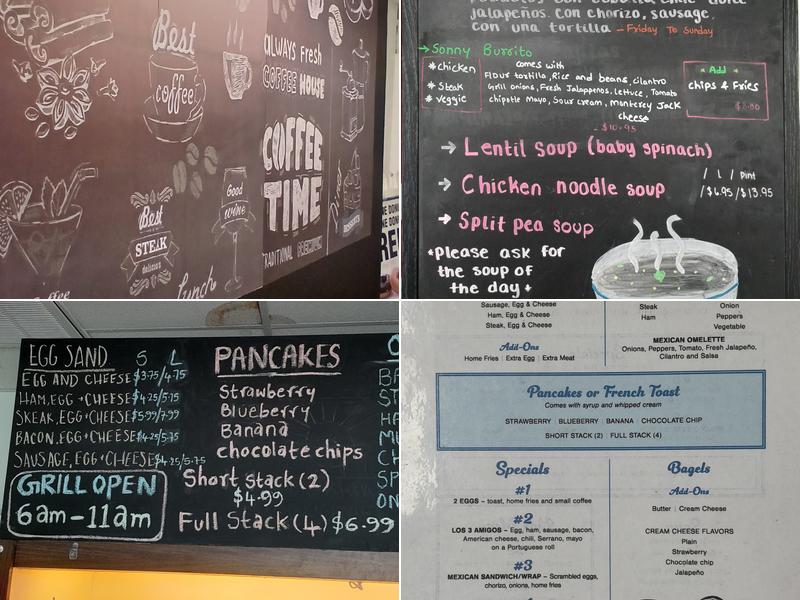 Best
coffee
ALWAYS Fresh
COFFEE HOUSE
COFFEE
TIME
TRADITIONAL
Best
STEAK
delicious
Good
wine
Lunch
jalapeños. con chorizo, sausage,
con una tortilla - Friday To Sunday
→ Sonny Burrito
*chicken
*Steak
*veggie
comes with
Flour tortilla, Rice and beans, cilantro
Grill onions, Fresh Jalappenos, lettuce, Tomato
chipotle Mayo, Sour cream, Monterey Jack
cheese
- $10.95
* Add *
chips & Fries
→ Lentil soup (baby spinach)
→ Chicken noodle soup
→ Split pea soup
/ L / Pint
/$6.95/$13.95
*Please ask for
the soup of
the day*
EGG SAND. S L
EGG AND CHEESE $3.75/4.75
HAM, EGG + CHEESE $4.25/5.75
SKEAK, EGG + CHEESE $5.99/7.99
BACON, EGG + CHEESE $4.25/5.75
SAUSAGE, EGG + CHEESE $4.25/5.75
GRILL OPEN
6am-11am
PANCAKES
Strawberry
Blueberry
Banana
chocolate chips
Short stack (2)
$4.99
Full Stack (4) $6.99
Sausage, Egg & Cheese
Ham, Egg & Cheese
Steak, Egg & Cheese
Add-Ons
Home Fries | Extra Egg | Extra Meat
Steak
Ham
Onion
Peppers
Vegetable
MEXICAN OMELETTE
Onions, Peppers, Tomato, Fresh Jalapeño,
Cilantro and Salsa
Pancakes or French Toast
Comes with syrup and whipped cream
STRAWBERRY | BLUEBERRY | BANANA | CHOCOLATE CHIP
SHORT STACK (2) | FULL STACK (4)
Specials
#1
2 EGGS – toast, home fries and small coffee
#2
LOS 3 AMIGOS – Egg, ham, sausage, bacon,
American cheese, chili, Serrano, mayo
on a Portuguese roll
#3
MEXICAN SANDWICH/WRAP – Scrambled eggs,
chorizo, onions, home fries
Bagels
Add-Ons
Butter | Cream Cheese
CREAM CHEESE FLAVORS
Plain
Strawberry
Chocolate chip
Jalapeño